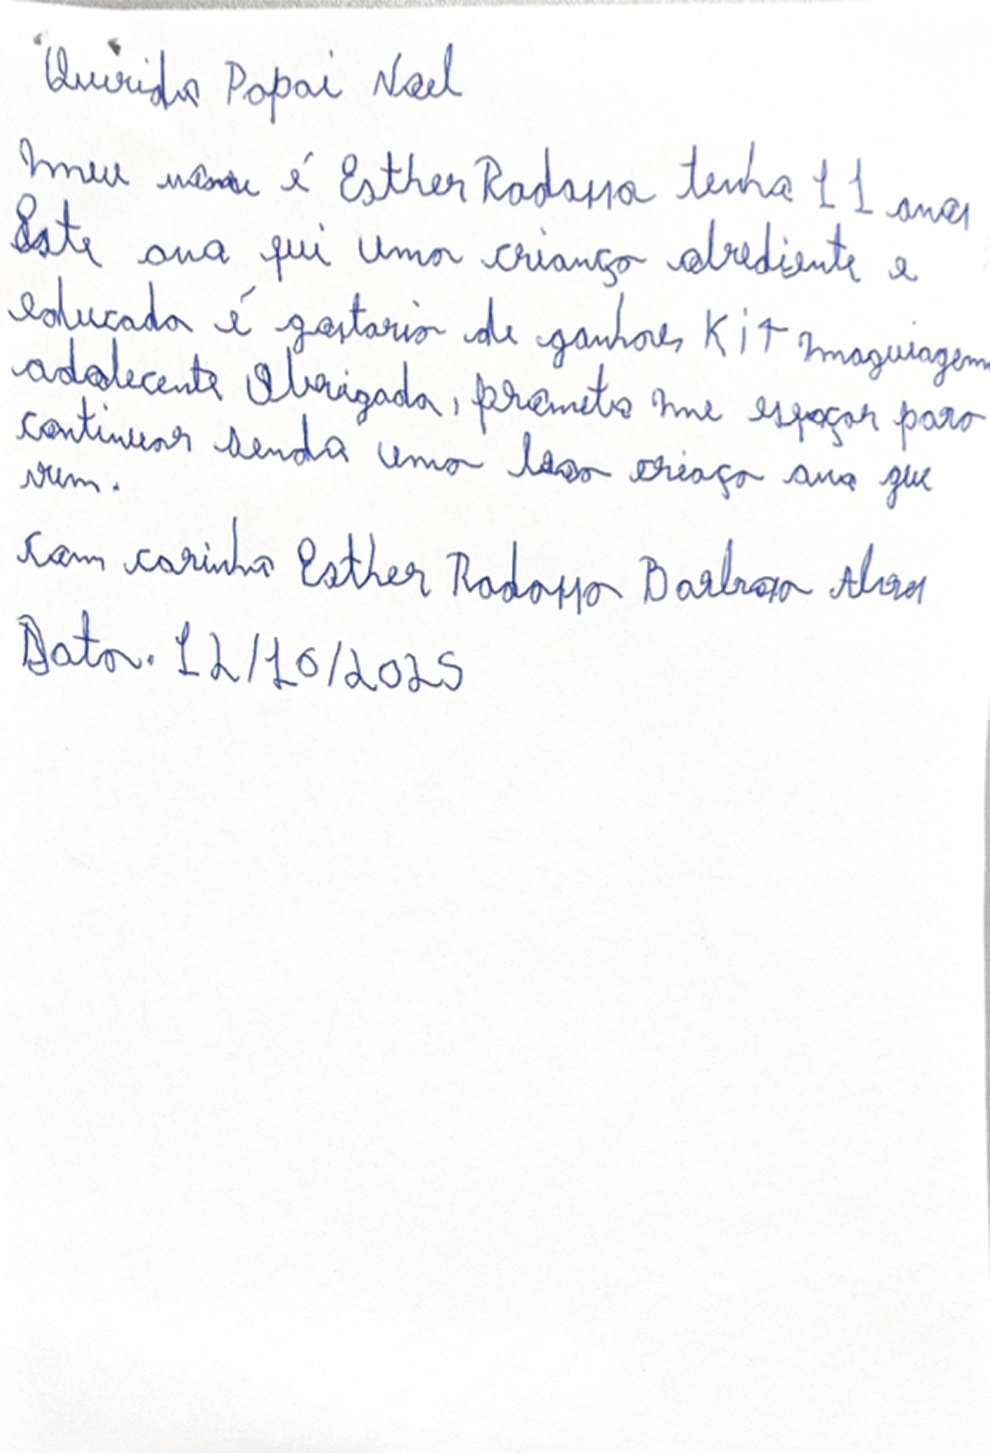 Querido Papai Noel
meu nome é Esther Radassa tenho 11 anos
Este ano fui uma criança obediente e
educada é gostaria de ganhar Kit maquiagem
adolecente Obrigada, prometo me esforçar para
continuar sendo uma boa criaça ano que
vem.
com carinho Esther Radassa Barbosa Alves
Data. 12/10/2025